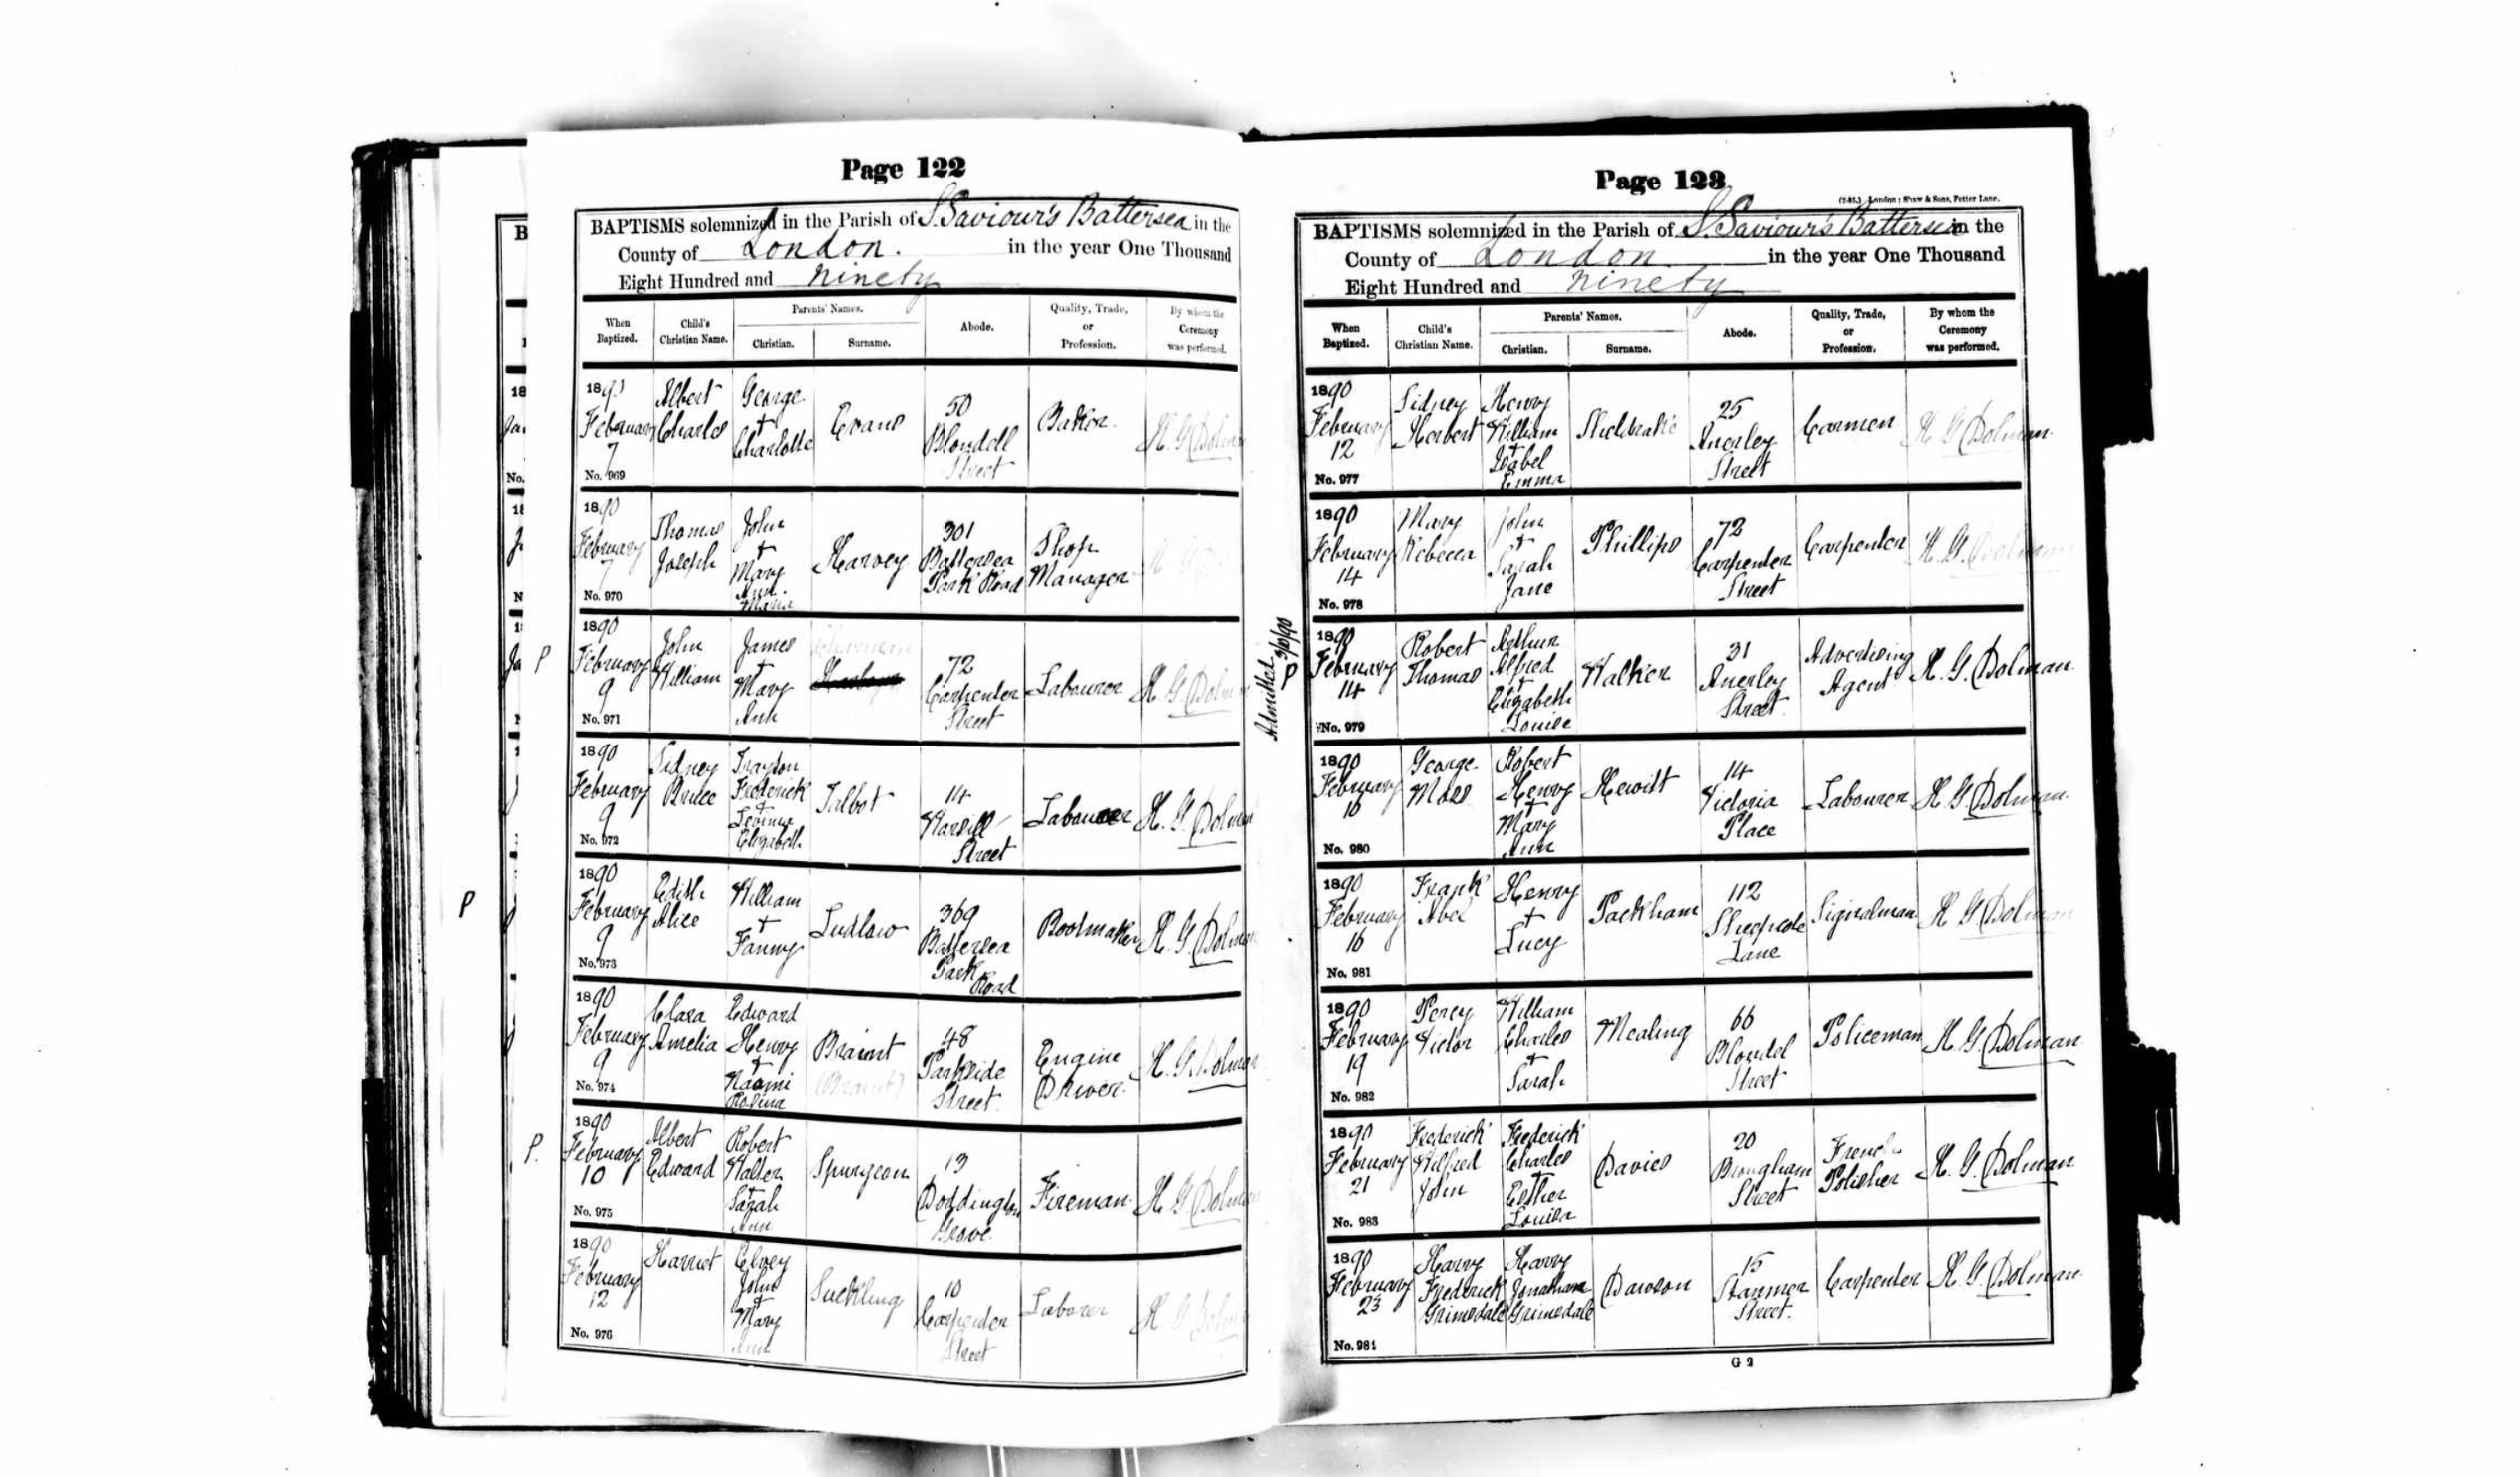 Page 122
BAPTISMS solemnized in the Parish of S. Saviour's Battersea in the
County of London. in the year One Thousand
Eight Hundred and ninety
When Baptized.
Child's Christian Name.
Parents' Names.
Christian.
Surname.
Abode.
Quality, Trade, or Profession.
By whom the Ceremony was performed.
1890 February 7 No. 969
Albert Charles
George + Charlotte
Evans
50 Blondell Street
Baker
H. G. Dolman
1890 February 7 No. 970
Thomas Joseph
John + Mary Ann Maria
Harvey
301 Battersea Park Road
Shop Manager
P
1890 February 9 No. 971
John William
James + Mary Ann
72 Carpenter Street
Labourer
H. G. Dolman
1890 February 9 No. 972
Sidney Bruce
Frederick + Elizabeth
Talbot
14 Street
Labourer
H. G. Dolman
P
1890 February 9 No. 973
Edith Alice
William + Fanny
Ludlow
369 Battersea Park Road
Bootmaker
H. G. Dolman
1890 February 9 No. 974
Clara Amelia
Edward Henry + Naomi Rosina
Braint
(Braint)
48 Parkside Street.
Engine Driver.
H. G. Dolman
P.
1890 February 10 No. 975
Albert Edward
Robert Walter + Sarah Ann
Spurgeon
13 Doddington Grove.
Fireman
H. G. Dolman
1890 February 12 No. 976
Harriet
Elvey John + Mary Ann
Suckling
10 Carpenter Street
Laborer
H. G. Dolman
Page 123
(7-85.) London: Shaw & Sons, Fetter Lane.
BAPTISMS solemnized in the Parish of S. Saviour's Battersea in the
County of London in the year One Thousand
Eight Hundred and ninety
When Baptized.
Child's Christian Name.
Parents' Names.
Christian.
Surname.
Abode.
Quality, Trade, or Profession.
By whom the Ceremony was performed.
1890 February 12 No. 977
Sidney Herbert
Henry William + Isabel Emma
Sheldrake
25 Anerley Street
Carmen
H. G. Dolman.
1890 February 14 No. 978
Mary Rebecca
John + Sarah Jane
Phillips
72 Carpenter Street
Carpenter
H. G. Dolman
Admitted
P
1890 February 14 No. 979
Robert Thomas
Arthur Alfred + Elizabeth Louise
Walker
31 Anerley Street.
Advertising Agent
H. G. Dolman.
1890 February 16 No. 980
George Moss
Robert Henry + Mary Ann
Hewitt
14 Victoria Place
Labourer
H. G. Dolman.
1890 February 16 No. 981
Frank Abel
Henry + Lucy
Packham
112 Sheepcote Lane
Signalman
H. G. Dolman
1890 February 19 No. 982
Percy Victor
William Charles + Sarah
Mealing
66 Blondel Street
Policeman
H. G. Dolman
1890 February 21 No. 983
Frederick Wilfred John
Frederick Charles + Esther Louisa
Davies
20 Brougham Street
French Polisher
H. G. Dolman
1890 February 23 No. 984
Harry Frederick Grimsdale
Harry Jonathan Grimsdale
Dawson
15 Stanmer Street.
Carpenter
H. G. Dolman.
G 2